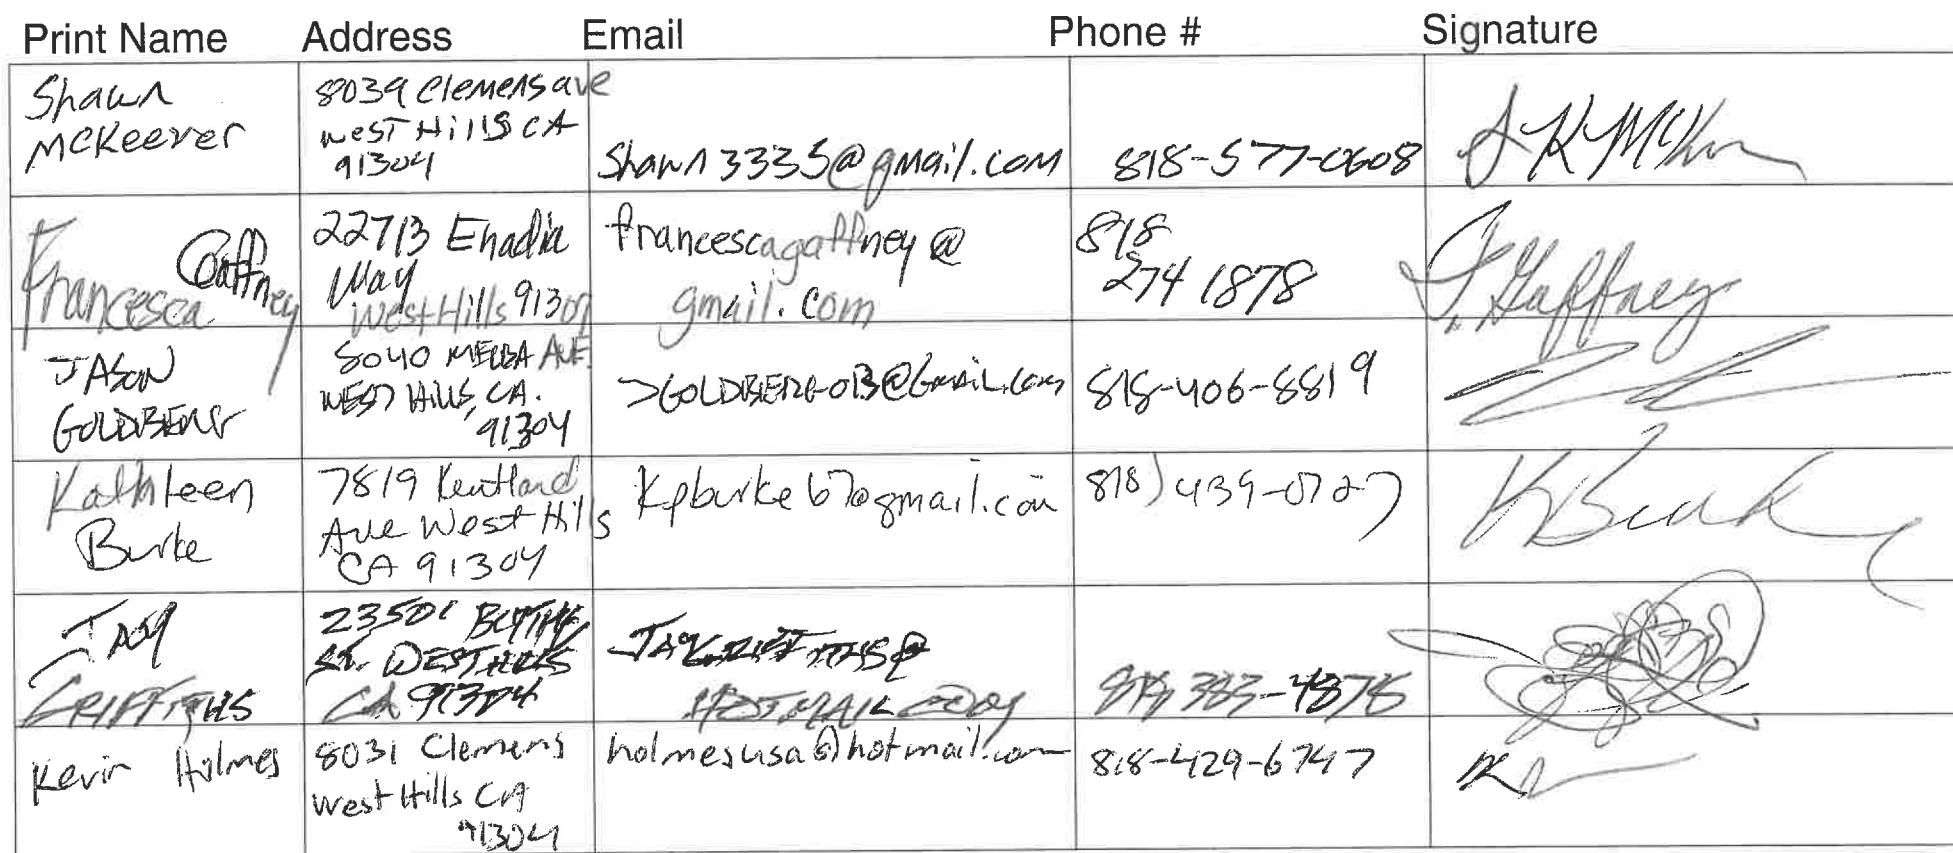 Print Name Address Email Phone # Signature
Shawn
McKeever
8039 Clemens ave
West Hills CA
91304
Shawn3335@gmail.com
818-577-0608
Francesca Gaffney
22713 Enadia
Way
West Hills 91307
francescagaffney@
gmail.com
818
274 1878
F. Gaffney
JASON
GOLDBERG
8040 MELBA AVE.
WEST HILLS, CA.
91304
JGOLDBERG013@Gmail.com
818-406-8819
Kathleen
Burke
7819 Kentland
Ave West Hills
CA 91304
kpburke67@gmail.com
818) 439-0727
K Burke
JAY
GRIFFITHS
23501 BLYTHE
ST. WEST HILLS
CA 91304
JAYGRIFFITHS@
HOTMAIL.COM
818 383-4875
Kevin Holmes
8031 Clemens
West Hills CA
91304
holmesusa@hotmail.com
818-429-6747